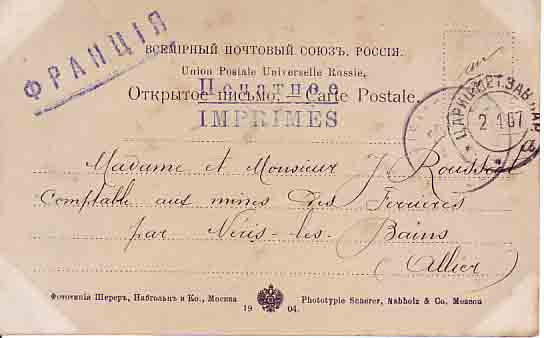 ФРАНЦІЯ
ВСЕМІРНЫЙ ПОЧТОВЫЙ СОЮЗЪ. РОССІЯ.
Union Postale Universelle Russie,
Печатное
Открытое письмо. — Carte Postale.
IMPRIMÉS
2 1 07
Madame et Monsieur J. Roussel
Comptable aux mines des Ferrières
par Néris-les-Bains
(Allier)
Фототипія Шереръ, Набгольцъ и Ко., Москва
Phototypie Scherer, Nabholz & Co. Moscou
1904.